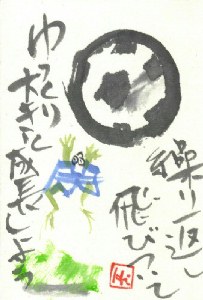 繰り返し
飛びついて
ゆっくり
大きく成長しよう